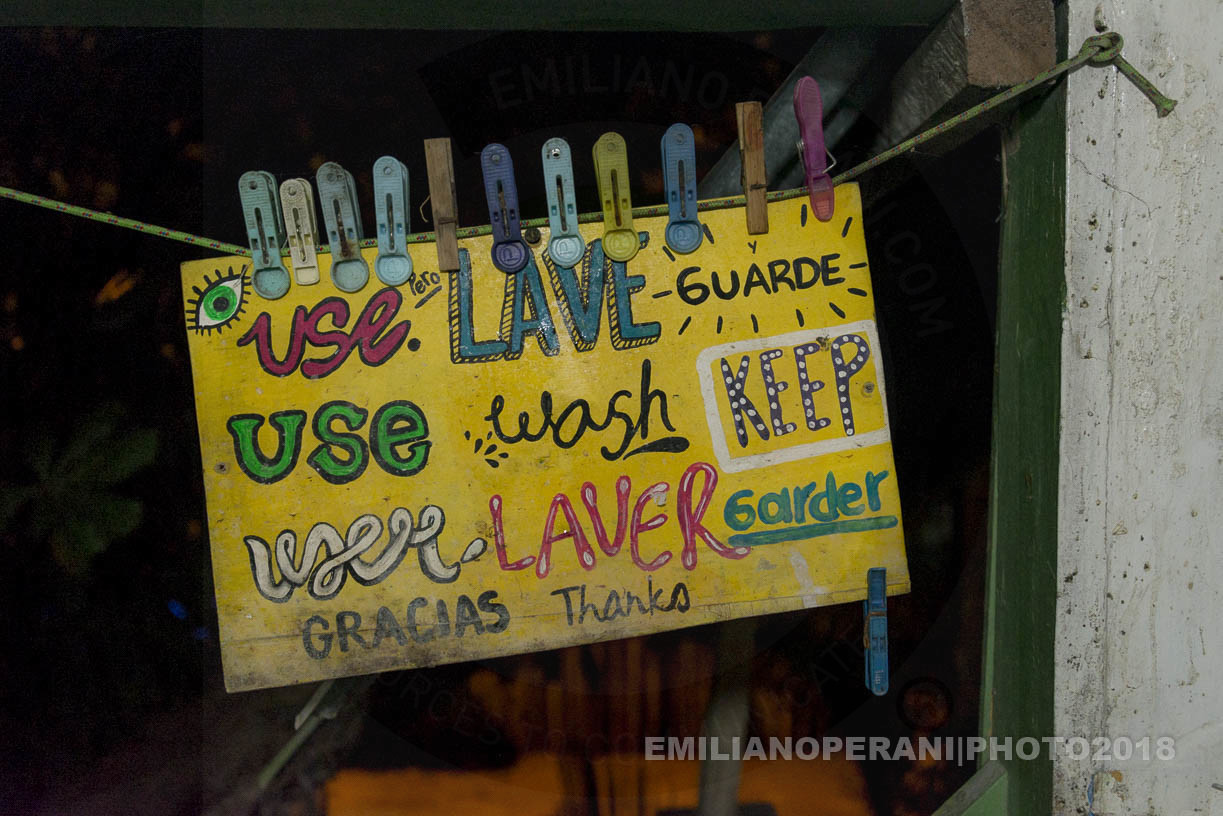 EMILIANO
use. Pero LAVE GUARDE
use wash KEEP
user LAVER Garder
GRACIAS Thanks
EMILIANOPERANI|PHOTO2018